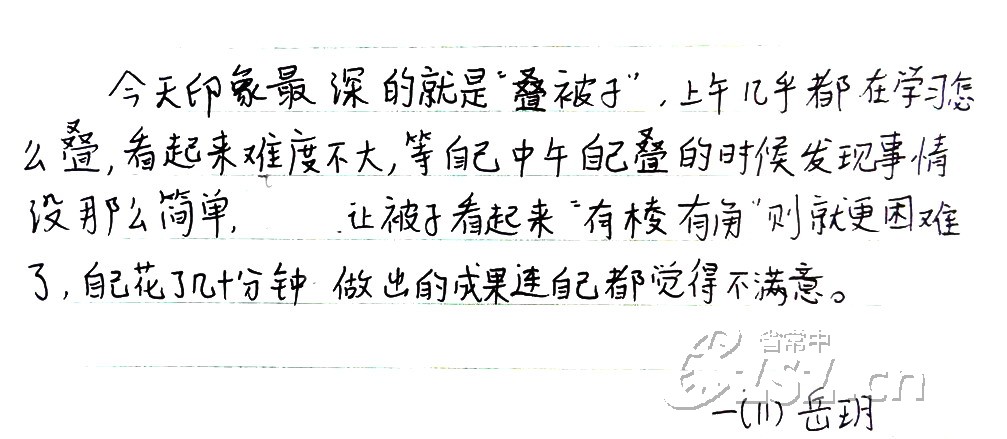 今天印象最深的就是“叠被子”，上午几乎都在学习怎
么叠，看起来难度不大，等自己中午自己叠的时候发现事情
没那么简单，让被子看起来“有棱有角”则就更困难
了，自己花了几十分钟做出的成果连自己都觉得不满意。
省常中
.cn
一(11) 岳玥